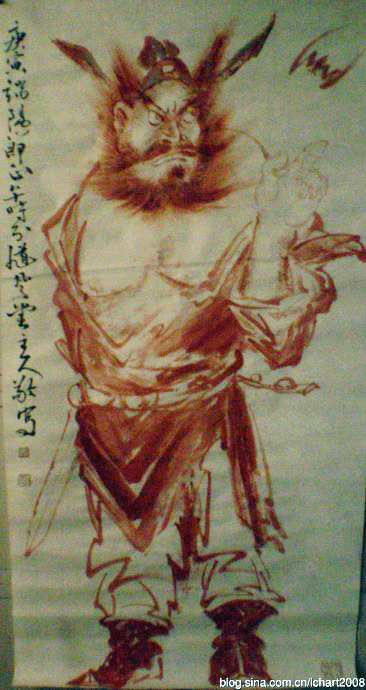 庚寅端陽節正午時分堂主人敬寫
blog.sina.com.cn/lchart2008